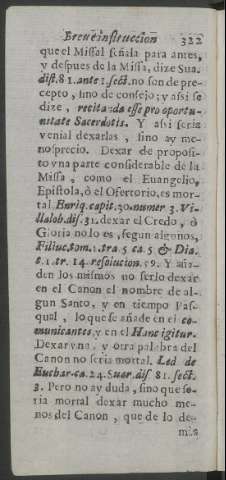 Breue instruccion 322
que el Missal señala para antes,
y despues de la Missa, dize Sua.
dist. 81. ante 1. sect. no son de pre-
cepto, sino de consejo; y assi se
dize, recita da esse pro oportu-
nitate Sacerdotis. Y assi seria
venial dexarlas, sino ay me-
nosprecio. Dexar de proposi-
to vna parte considerable de la
Missa, como el Euangelio,
Epistola, ò el Ofertorio, es mor-
tal. Enriq. capit. 30. numer 3. Vi-
llalob. dif. 31. dexar el Credo, ò
Gloria no lo es, segun algunos,
Filiuc. tom. 1. tra. 5 ca. 5 & Dia.
t. 1. tr. 14. resolucion. 59. Y aña-
den los mismos no serlo dexar
en el Canon el nombre de al-
gun Santo, y en tiempo Pas-
qual, lo que se añade en el co-
municantes, y en el Hanc igitur.
Dexar vna, y otra palabra del
Canon no seria mortal. Led. de
Euchar. ca. 24. Suar. dis 81. sect.
3. Pero no ay duda, sino que se-
ria mortal dexar mucho me-
nos del Canon, que de lo de-
mas